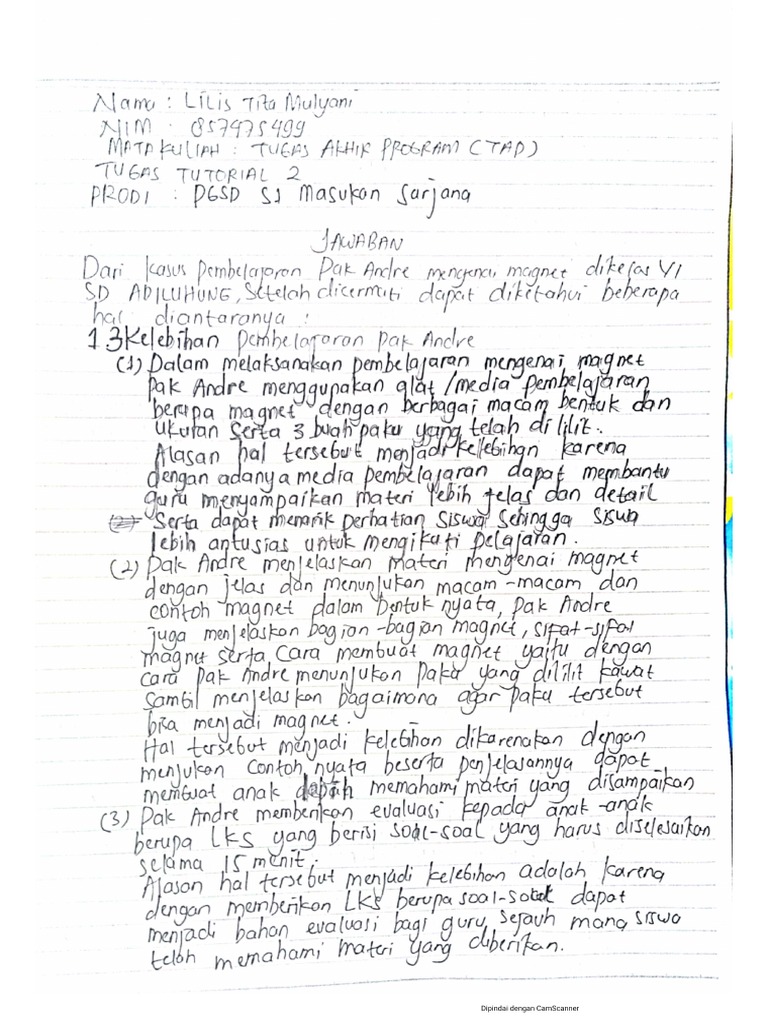 Nama : Lilis Tita Mulyani
NIM : 857475499
MATA KULIAH : TUGAS AKHIR PROGRAM (TAP)
TUGAS TUTORIAL 2
PRODI : PGSD S1 Masukan Sarjana
JAWABAN
Dari kasus Pembelajaran Pak Andre mengenai magnet dikelas VI
SD ADILUHUNG, Setelah dicermati dapat diketahui beberapa
hal diantaranya :
1. 3 Kelebihan pembelajaran pak Andre
(1) Dalam melaksanakan pembelajaran mengenai magnet
pak Andre menggunakan alat /media pembelajaran
berupa magnet dengan berbagai macam bentuk dan
ukuran serta 3 buah paku yang telah di lilit.
Alasan hal tersebut menjadi kelebihan karena
dengan adanya media pembelajaran dapat membantu
guru menyampaikan materi lebih jelas dan detail
serta dapat menarik perhatian siswa sehingga siswa
lebih antusias untuk mengikuti pelajaran.
(2) Pak Andre menjelaskan materi mengenai magnet
dengan jelas dan menunjukan macam-macam dan
contoh magnet dalam bentuk nyata, pak Andre
juga menjelaskan bagian-bagian magnet, sifat-sifat
magnet serta cara membuat magnet yaitu dengan
cara pak Andre menunjukan paku yang dililit kawat
sambil menjelaskan bagaimana agar paku tersebut
bisa menjadi magnet.
Hal tersebut menjadi kelebihan dikarenakan dengan
menjukan contoh nyata beserta penjelasannya dapat
membuat anak memahami materi yang disampaikan
(3) Pak Andre memberikan evaluasi kepada anak-anak
berupa LKS yang berisi soal-soal yang harus diselesaikan
selama 15 menit.
Alasan hal tersebut menjadi kelebihan adalah karena
dengan memberikan LKS berupa soal-soal dapat
menjadi bahan evaluasi bagi guru, sejauh mana siswa
telah memahami materi yang diberikan.
Dipindai dengan CamScanner